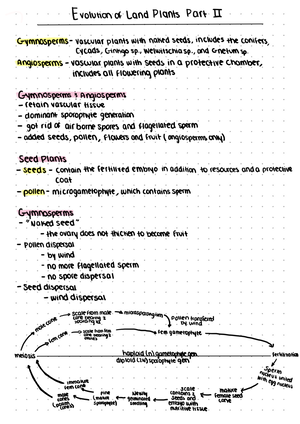 Evolution of Land Plants Part II
Gymnosperms - vascular plants with naked seeds, includes the conifers,
Cycads, Ginkgo sp., Welwitschia sp., and Gnetum sp.
Angiosperms - vascular plants with seeds in a protective chamber,
includes all flowering plants
Gymnosperms + Angiosperms
- retain vascular tissue
- dominant sporophyte generation
- got rid of air borne spores and flagellated sperm
- added seeds, pollen, flowers and fruit (angiosperms only)
Seed Plants
- seeds - contain the fertilized embryo in addition to resources and a protective
coat
- pollen - microgametophyte, which contains sperm
Gymnosperms
- "Naked seed"
- the ovary does not thicken to become fruit
- Pollen dispersal
- by wind
- no more flagellated sperm
- no spore dispersal
- Seed dispersal
- wind dispersal
male cone
scale from male
microsporangium
pollen transferred
by wind
fem cone
fem gametophyte
meiosis
haploid (n) gametophyte gen
diploid (2n) sporophyte gen
fertilization
sperm
nucleus united
w/ egg nucleus
mature
female seed
cone
scale
contains 2
seeds and
embryo with
nutritive tissue
newly
germinated
seedling
pine
(mature
sporophyte)
immature
fem cone
male
cones
(pollen
cones)